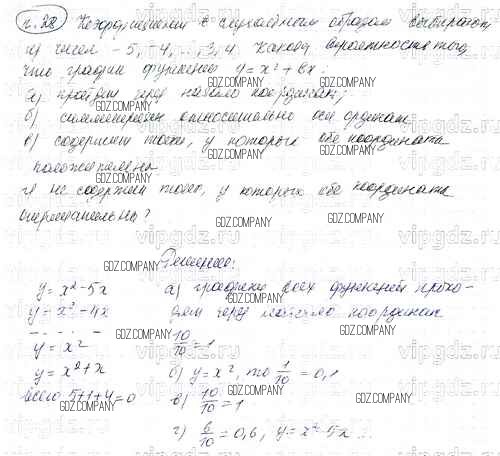 п.32 Коэффициент b случайным образом выбирают
из чисел -5, -4, ... 3, 4. Какова вероятность того,
что график функции y = x² + bx:
а) пройдет через начало координат;
б) симметричен относительно оси ординат
в) содержит точки, у которых обе координаты
положительны
г) не содержит точек, у которых обе координаты
отрицательны?
Решение:
y = x² - 5x
y = x² - 4x
y = x²
y = x² + x
всего 5+1+4=0
а) графики всех функций прохо-
дят через начало координат
10/10 = 1
б) y = x², то 1/10 = 0,1
в) 10/10 = 1
г) 6/10 = 0,6, y = x² - 5x ...
GDZ.COMPANY
vipgdz.ru